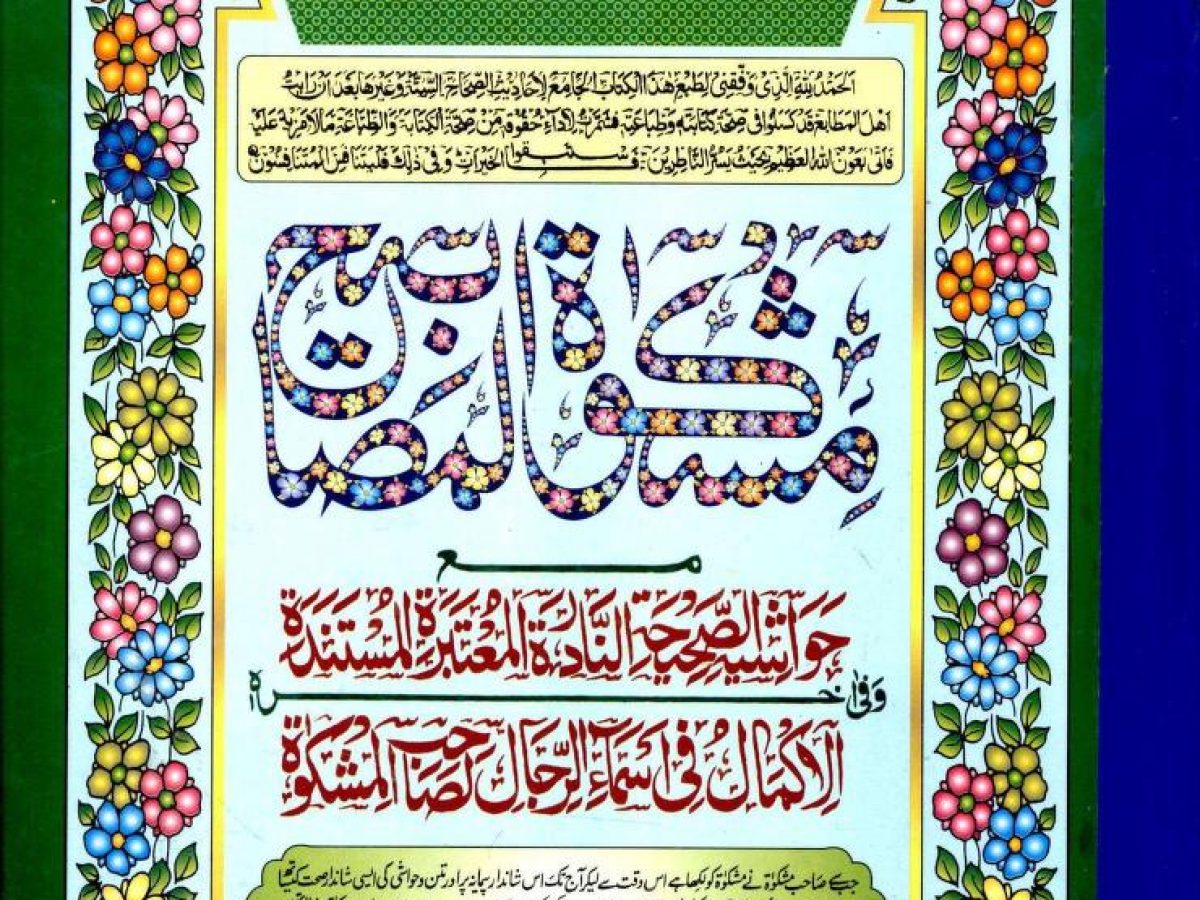 الحمد لله الذی وفقنی لطبع هذا الکتاب الجامع لاحادیث الصحاح الستة وغیرها بعد ان رایت
اهل المطابع قد کسلوا فی صحة کتابته وطباعته فشمرت لاداء حقوقه من صحة الکتابة والطباعة مالا مزید علیه
فاتی بعون الله العظیم بحیث یسر الناظرین فاستبقوا الخیرات وفی ذلک فلیتنافس المتنافسون
مشکوة المصابیح
مع
حواشیه الصحیحة النادرة المعتبرة المستندة
وفی اخره
الاکمال فی اسماء الرجال لصاحب المشکوة
جب سے صاحب مشکوٰۃ نے مشکوٰۃ کو لکھا ہے اس وقت سے لیکر آج تک اس شاندار پیمانہ پر اور متن و حواشی کی ایسی شاندار صحت کیساتھ